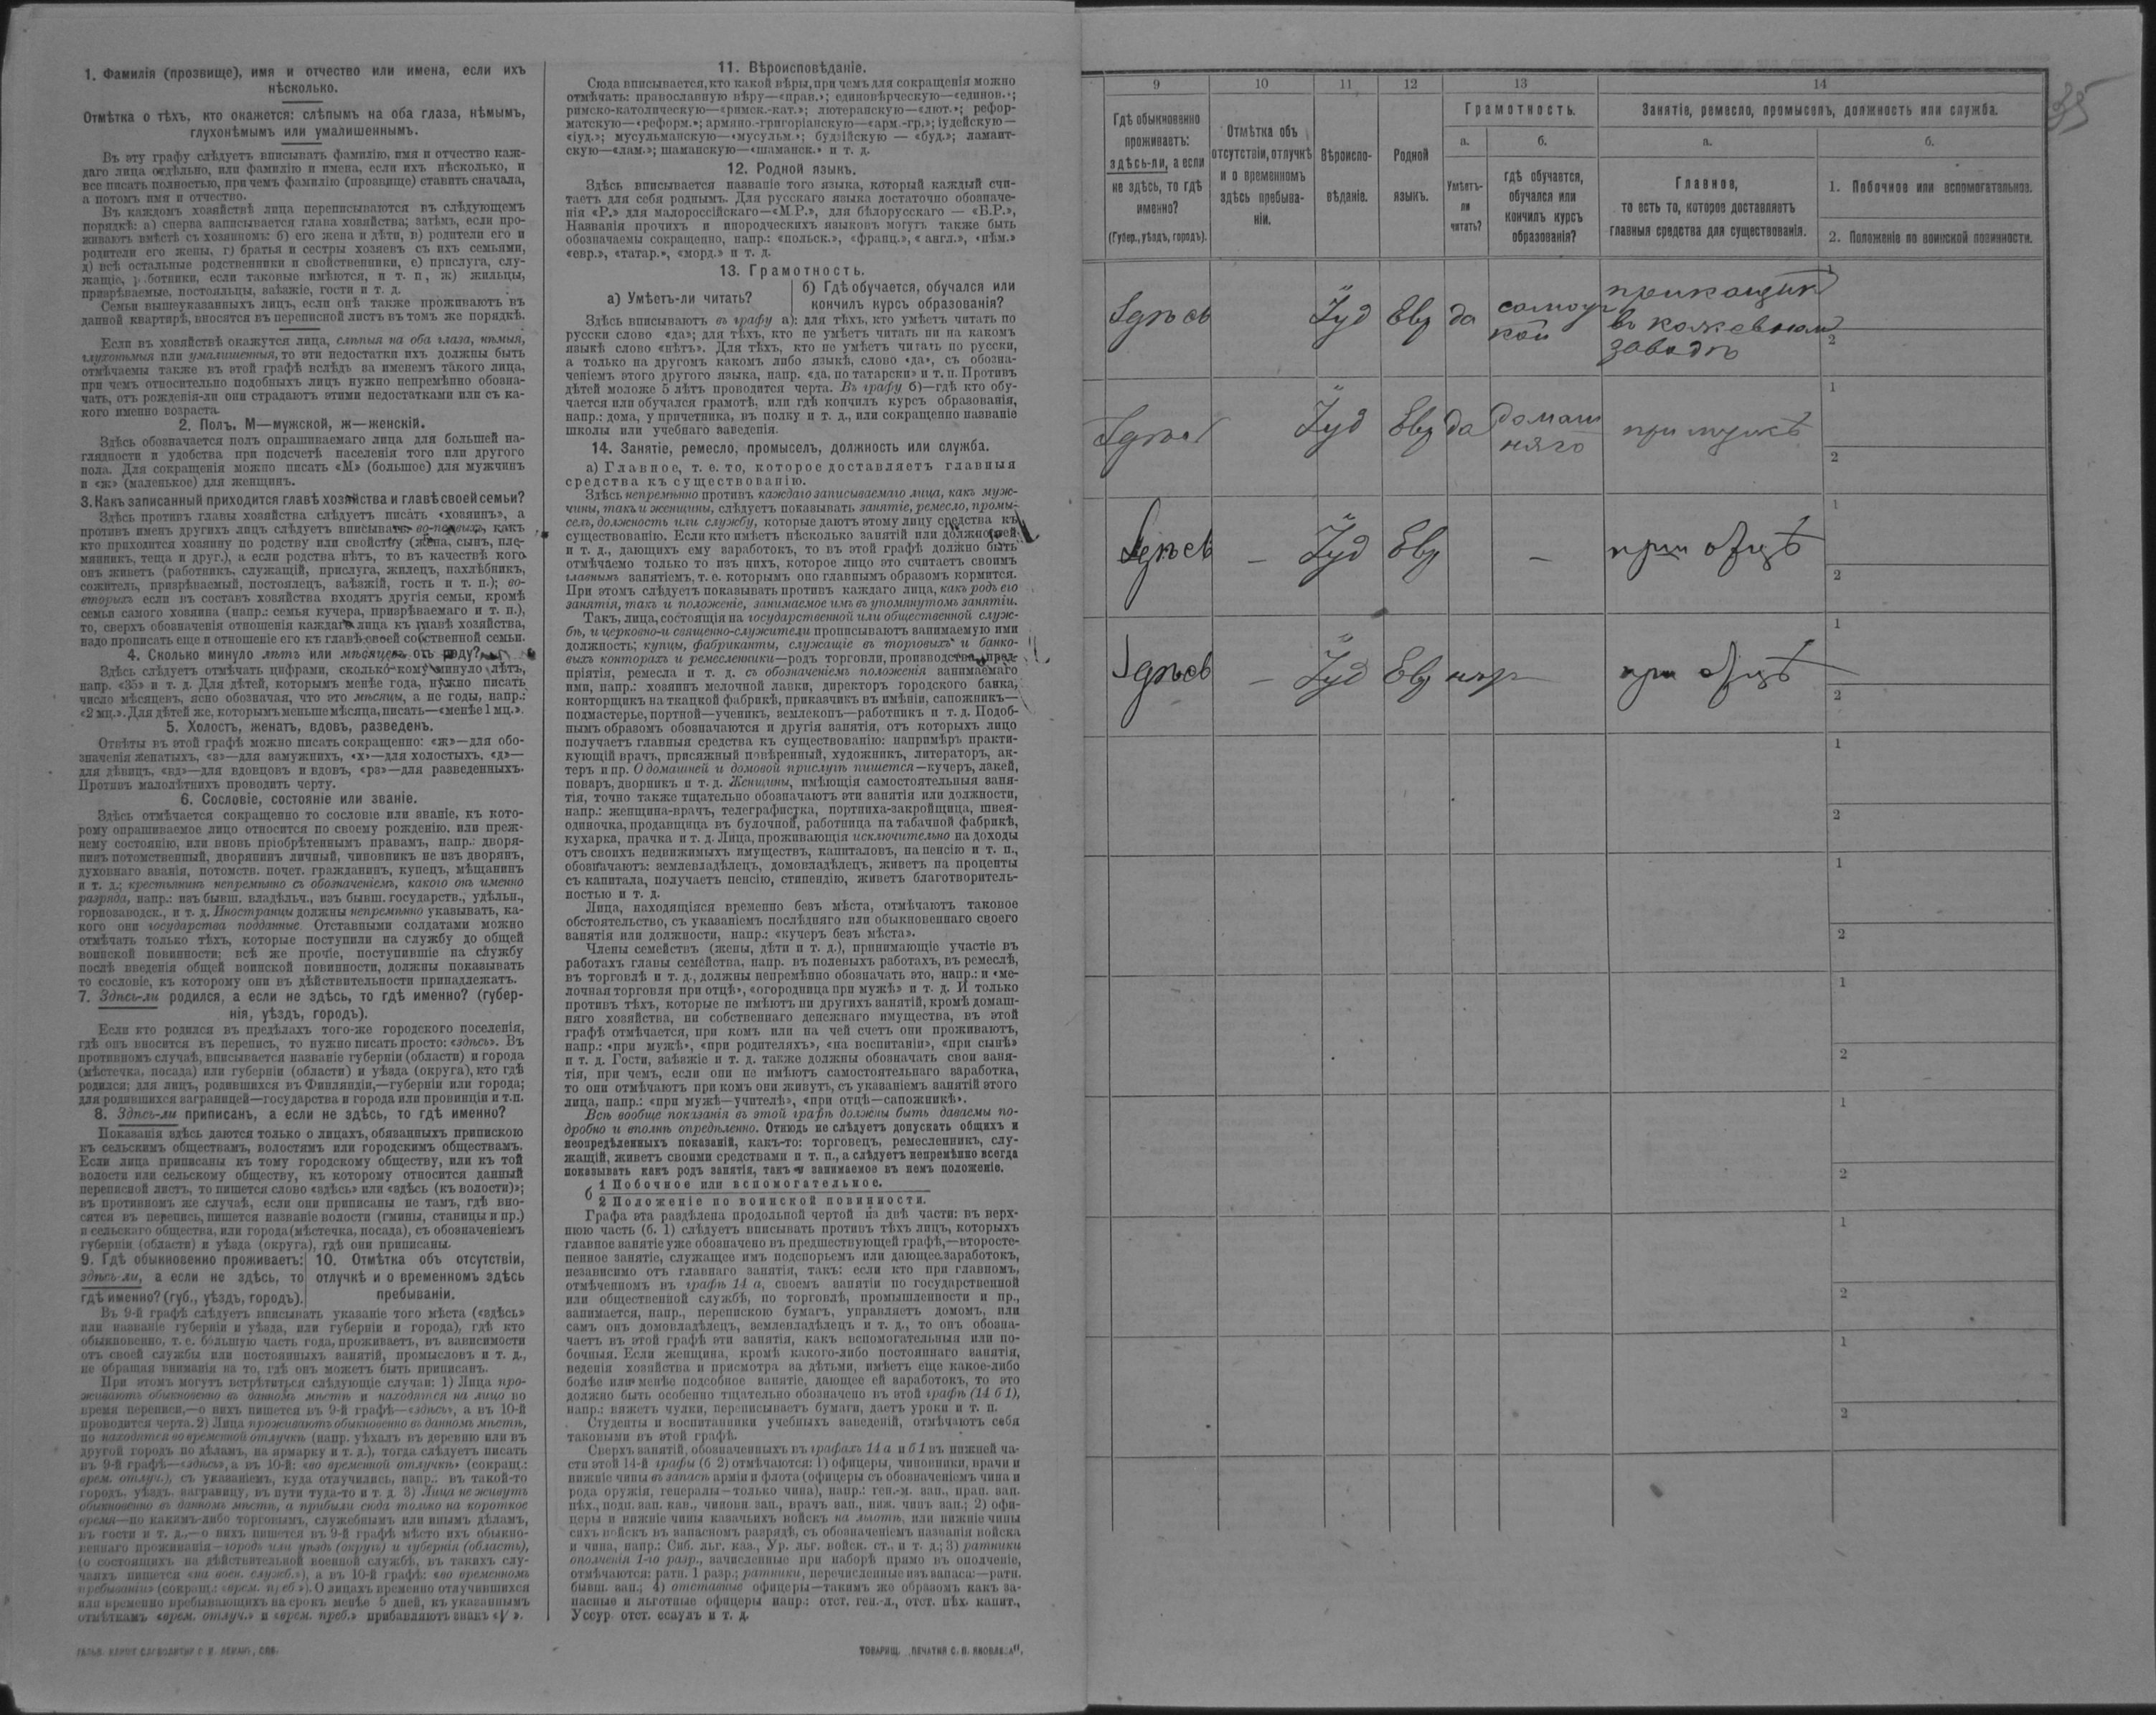 1. Фамилія (прозвище), имя и отчество или имена, если ихъ
нѣсколько.
Отмѣтка о тѣхъ, кто окажется: слѣпымъ на оба глаза, нѣмымъ,
глухонѣмымъ или умалишеннымъ.
Въ эту графу слѣдуетъ вписывать фамилію, имя и отчество каж-
даго лица отдѣльно, или фамилію и имена, если ихъ нѣсколько, и
все писать полностью, при чемъ фамилію (прозвище) ставить сначала,
а потомъ имя и отчество.
Въ каждомъ хозяйствѣ лица переписываются въ слѣдующемъ
порядкѣ: а) сперва записывается глава хозяйства; затѣмъ, если про-
живаютъ вмѣстѣ съ хозяиномъ: б) его жена и дѣти, в) родители его и
родители его жены, г) братья и сестры хозяевъ съ ихъ семьями,
д) всѣ остальные родственники и свойственники, е) прислуга, слу-
жащіе, работники, если таковые имѣются, и т. п, ж) жильцы,
призрѣваемые, постояльцы, заѣзжіе, гости и т. д.
Семьи вышеуказанныхъ лицъ, если онѣ также проживаютъ въ
данной квартирѣ, вносятся въ переписной листъ въ томъ же порядкѣ.
Если въ хозяйствѣ окажутся лица, слѣпыя на оба глаза, нѣмыя,
глухонѣмыя или умалишенныя, то эти недостатки ихъ должны быть
отмѣчаемы также въ этой графѣ вслѣдъ за именемъ такого лица,
при чемъ относительно подобныхъ лицъ нужно непремѣнно обозна-
чать, отъ рожденія-ли они страдаютъ этими недостатками или съ ка-
кого именно возраста.
2. Полъ, М—мужской, ж—женскій.
Здѣсь обозначается полъ опрашиваемаго лица для большей на-
глядности и удобства при подсчетѣ населенія того или другого
пола. Для сокращенія можно писать «М» (большое) для мужчинъ
и «ж» (маленькое) для женщинъ.
3. Какъ записанный приходится главѣ хозяйства и главѣ своей семьи?
Здѣсь противъ главы хозяйства слѣдуетъ писать «хозяинъ», а
противъ именъ другихъ лицъ слѣдуетъ вписывать: во-первыхъ, какъ
кто приходится хозяину по родству или свойству (жена, сынъ, пле-
мянникъ, теща и друг.), а если родства нѣтъ, то въ качествѣ кого
онъ живетъ (работникъ, служащій, прислуга, жилецъ, нахлѣбникъ,
сожитель, призрѣваемый, постоялецъ, заѣзжій, гость и т. п.); во-
вторыхъ если въ составъ хозяйства входятъ другія семьи, кромѣ
семьи самого хозяина (напр.: семья кучера, призрѣваемаго и т. п.),
то, сверхъ обозначенія отношенія каждаго лица къ главѣ хозяйства,
надо прописать еще и отношеніе его къ главѣ своей собственной семьи.
4. Сколько минуло лѣтъ или мѣсяцевъ отъ роду?
Здѣсь слѣдуетъ отмѣчать цифрами, сколько кому минуло лѣтъ,
напр. «35» и т. д. Для дѣтей, которымъ менѣе года, нужно писать
число мѣсяцевъ, ясно обозначая, что это мѣсяцы, а не годы, напр.:
«2 мц.». Для дѣтей же, которымъ меньше мѣсяца, писать—«менѣе 1 мц.».
5. Холостъ, женатъ, вдовъ, разведенъ.
Отвѣты въ этой графѣ можно писать сокращенно: «ж»—для обо-
значенія женатыхъ, «з»—для замужнихъ, «х»—для холостыхъ, «д»—
для дѣвицъ, «вд»—для вдовцовъ и вдовъ, «рз»—для разведенныхъ.
Противъ малолѣтнихъ проводить черту.
6. Сословіе, состояніе или званіе.
Здѣсь отмѣчается сокращенно то сословіе или званіе, къ кото-
рому опрашиваемое лицо относится по своему рожденію, или преж-
нему состоянію, или вновь пріобрѣтеннымъ правамъ, напр.: дворя-
нинъ потомственный, дворянинъ личный, чиновникъ не изъ дворянъ,
духовнаго званія, потомств. почет. гражданинъ, купецъ, мѣщанинъ
и т. д.; крестьянинъ непремѣнно съ обозначеніемъ, какого онъ именно
разряда, напр.: изъ бывш. владѣльч., изъ бывш. государств., удѣльн.,
горнозаводск., и т. д. Иностранцы должны непремѣнно указывать, ка-
кого они государства подданные. Отставными солдатами можно
отмѣчать только тѣхъ, которые поступили на службу до общей
воинской повинности; всѣ же прочіе, поступившіе на службу
послѣ введенія общей воинской повинности, должны показывать
то сословіе, къ которому они въ дѣйствительности принадлежатъ.
7. Здѣсь-ли родился, а если не здѣсь, то гдѣ именно? (губер-
нія, уѣздъ, городъ).
Если кто родился въ предѣлахъ того-же городского поселенія,
гдѣ онъ вносится въ перепись, то нужно писать просто: «здѣсь». Въ
противномъ случаѣ, вписывается названіе губерніи (области) и города
(мѣстечка, посада) или губерніи (области) и уѣзда (округа), кто гдѣ
родился; для лицъ, родившихся въ Финляндіи,—губерніи или города;
для родившихся заграницей—государства и города или провинціи и т.п.
8. Здѣсь-ли приписанъ, а если не здѣсь, то гдѣ именно?
Показанія здѣсь даются только о лицахъ, обязанныхъ припискою
къ сельскимъ обществамъ, волостямъ или городскимъ обществамъ.
Если лица приписаны къ тому городскому обществу, или къ той
волости или сельскому обществу, къ которому относится данный
переписной листъ, то пишется слово «здѣсь» или «здѣсь (къ волости)»;
въ противномъ же случаѣ, если они приписаны не тамъ, гдѣ вно-
сятся въ перепись, пишется названіе волости (гмины, станицы и пр.)
и сельскаго общества, или города (мѣстечка, посада), съ обозначеніемъ
губерніи (области) и уѣзда (округа), гдѣ они приписаны.
9. Гдѣ обыкновенно проживаетъ:
здѣсь-ли, а если не здѣсь, то
гдѣ именно? (губ., уѣздъ, городъ).
10. Отмѣтка объ отсутствіи,
отлучкѣ и о временномъ здѣсь
пребываніи.
Въ 9-й графѣ слѣдуетъ вписывать указаніе того мѣста («здѣсь»
или названіе губерніи и уѣзда, или губерніи и города), гдѣ кто
обыкновенно, т. е. большую часть года, проживаетъ, въ зависимости
отъ своей службы или постоянныхъ занятій, промысловъ и т. д.,
не обращая вниманія на то, гдѣ онъ можетъ быть приписанъ.
При этомъ могутъ встрѣтиться слѣдующіе случаи: 1) Лица про-
живаютъ обыкновенно въ данномъ мѣстѣ и находятся на лицо во
время переписи,—о нихъ пишется въ 9-й графѣ—«здѣсь», а въ 10-й
проводится черта. 2) Лица проживаютъ обыкновенно въ данномъ мѣстѣ,
но находятся во временной отлучкѣ (напр. уѣхалъ въ деревню или въ
другой городъ по дѣламъ, на ярмарку и т. д.), тогда слѣдуетъ писать
въ 9-й графѣ—«здѣсь», а въ 10-й: «во временной отлучкѣ» (сокращ.:
врем. отлуч.), съ указаніемъ, куда отлучились, напр.: въ такой-то
городъ, уѣздъ, заграницу, въ пути туда-то и т. д. 3) Лица не живутъ
обыкновенно въ данномъ мѣстѣ, а прибыли сюда только на короткое
время—по какимъ-либо торговымъ, служебнымъ или инымъ дѣламъ,
въ гости и т. д.,—о нихъ пишется въ 9-й графѣ мѣсто ихъ обыкно-
веннаго проживанія—городъ или уѣздъ (округъ) и губернія (область),
(о состоящихъ на дѣйствительной военной службѣ, въ такихъ слу-
чаяхъ пишется «на воен. служб.»), а въ 10-й графѣ: «во временномъ
пребываніи» (сокращ.: «врем. преб»). О лицахъ временно отлучившихся
или временно пребывающихъ на срокъ менѣе 5 дней, къ указаннымъ
отмѣткамъ «врем. отлуч.» и «врем. преб.» прибавляютъ знакъ «V».
11. Вѣроисповѣданіе.
Сюда вписывается, кто какой вѣры, при чемъ для сокращенія можно
отмѣчать: православную вѣру—«прав.»; единовѣрческую—«единов.»;
римско-католическую—«римск.-кат.»; лютеранскую—«лют.»; рефор-
матскую—«реформ.»; армяно-григоріанскую—«арм.-гр.»; іудейскую—
«іуд.»; мусульманскую—«мусульм.»; буддійскую — «буд.»; ламаит-
скую—«лам.»; шаманскую—«шаманск.» и т. д.
12. Родной языкъ.
Здѣсь вписывается названіе того языка, который каждый счи-
таетъ для себя роднымъ. Для русскаго языка достаточно обозначе-
нія «Р.» для малороссійскаго—«М.Р.», для бѣлорусскаго — «Б.Р.»,
Названія прочихъ и инородческихъ языковъ могутъ также быть
обозначаемы сокращенно, напр.: «польск.», «франц.», « англ.», «нѣм.»
«евр.», «татар.», «морд.» и т. д.
13. Грамотность.
а) Умѣетъ-ли читать?
б) Гдѣ обучается, обучался или
кончилъ курсъ образованія?
Здѣсь вписываютъ въ графу а): для тѣхъ, кто умѣетъ читать по
русски слово «да»; для тѣхъ, кто не умѣетъ читать ни на какомъ
языкѣ слово «нѣтъ». Для тѣхъ, кто не умѣетъ читать по русски,
а только на другомъ какомъ либо языкѣ, слово «да», съ обозна-
ченіемъ этого другого языка, напр. «да, по татарски» и т. п. Противъ
дѣтей моложе 5 лѣтъ проводится черта. Въ графу б)—гдѣ кто обу-
чается или обучался грамотѣ, или гдѣ кончилъ курсъ образованія,
напр.: дома, у причетника, въ полку и т. д., или сокращенно названіе
школы или учебнаго заведенія.
14. Занятіе, ремесло, промыселъ, должность или служба.
а) Главное, т. е. то, которое доставляетъ главныя
средства къ существованію.
Здѣсь непремѣнно противъ каждаго записываемаго лица, какъ муж-
чины, такъ и женщины, слѣдуетъ показывать занятіе, ремесло, промы-
селъ, должность или службу, которые даютъ этому лицу средства къ
существованію. Если кто имѣетъ нѣсколько занятій или должностей
и т. д., дающихъ ему заработокъ, то въ этой графѣ должно быть
отмѣчаемо только то изъ нихъ, которое лицо это считаетъ своимъ
главнымъ занятіемъ, т. е. которымъ оно главнымъ образомъ кормится.
При этомъ слѣдуетъ показывать противъ каждаго лица, какъ родъ его
занятія, такъ и положеніе, занимаемое имъ въ упомянутомъ занятіи.
Такъ, лица, состоящія на государственной или общественной служ-
бѣ, и церковно-и священно-служители прописываютъ занимаемую ими
должность; купцы, фабриканты, служащіе въ торговыхъ и банко-
выхъ конторахъ и ремесленники—родъ торговли, производства, пред-
пріятія, ремесла и т. д. съ обозначеніемъ положенія занимаемаго
ими, напр.: хозяинъ мелочной лавки, директоръ городского банка,
конторщикъ на ткацкой фабрикѣ, приказчикъ въ имѣніи, сапожникъ—
подмастерье, портной—ученикъ, землекопъ—работникъ и т. д. Подоб-
нымъ образомъ обозначаются и другія занятія, отъ которыхъ лицо
получаетъ главныя средства къ существованію: напримѣръ практи-
кующій врачъ, присяжный повѣренный, художникъ, литераторъ, ак-
теръ и пр. О домашней и домовой прислугѣ пишется—кучеръ, лакей,
поваръ, дворникъ и т. д. Женщины, имѣющія самостоятельныя заня-
тія, точно также тщательно обозначаютъ эти занятія или должности,
напр.: женщина-врачъ, телеграфистка, портниха-закройщица, швея-
одиночка, продавщица въ булочной, работница на табачной фабрикѣ,
кухарка, прачка и т. д. Лица, проживающія исключительно на доходы
отъ своихъ недвижимыхъ имуществъ, капиталовъ, на пенсію и т. п.,
обозначаютъ: землевладѣлецъ, домовладѣлецъ, живетъ на проценты
съ капитала, получаетъ пенсію, стипендію, живетъ благотворитель-
ностью и т. д.
Лица, находящіяся временно безъ мѣста, отмѣчаютъ таковое
обстоятельство, съ указаніемъ послѣдняго или обыкновеннаго своего
занятія или должности, напр.: «кучеръ безъ мѣста».
Члены семействъ (жены, дѣти и т. д.), принимающіе участіе въ
работахъ главы семейства, напр. въ полевыхъ работахъ, въ ремеслѣ,
въ торговлѣ и т. д., должны непремѣнно обозначать это, напр.: и «ме-
лочная торговля при отцѣ», «огородница при мужѣ» и т. д. И только
противъ тѣхъ, которые не имѣютъ ни другихъ занятій, кромѣ домаш-
няго хозяйства, ни собственнаго денежнаго имущества, въ этой
графѣ отмѣчается, при комъ или на чей счетъ они проживаютъ,
напр.: «при мужѣ», «при родителяхъ», «на воспитаніи», «при сынѣ»
и т. д. Гости, заѣзжіе и т. д. также должны обозначать свои заня-
тія, при чемъ, если они не имѣютъ самостоятельнаго заработка,
то они отмѣчаютъ при комъ они живутъ, съ указаніемъ занятій этого
лица, напр.: «при мужѣ—учителѣ», «при отцѣ—сапожникѣ».
Всѣ вообще показанія въ этой графѣ должны быть даваемы по-
дробно и вполнѣ опредѣленно. Отнюдь не слѣдуетъ допускать общихъ и
неопредѣленныхъ показаній, какъ-то: торговецъ, ремесленникъ, слу-
жащій, живетъ своими средствами и т. п., а слѣдуетъ непремѣнно всегда
показывать какъ родъ занятія, такъ и занимаемое въ немъ положеніе.
б 1 Побочное или вспомогательное.
2 Положеніе по воинской повинности.
Графа эта раздѣлена продольной чертой на двѣ части: въ верх-
нюю часть (б. 1) слѣдуетъ вписывать противъ тѣхъ лицъ, которыхъ
главное занятіе уже обозначено въ предшествующей графѣ,—второсте-
пенное занятіе, служащее имъ подспорьемъ или дающее заработокъ,
независимо отъ главнаго занятія, такъ: если кто при главномъ,
отмѣченномъ въ графѣ 14 а, своемъ занятіи по государственной
или общественной службѣ, по торговлѣ, промышленности и пр.,
занимается, напр., перепискою бумагъ, управляетъ домомъ, или
самъ онъ домовладѣлецъ, землевладѣлецъ и т. д., то онъ обозна-
чаетъ въ этой графѣ эти занятія, какъ вспомогательныя или по-
бочныя. Если женщина, кромѣ какого-либо постояннаго занятія,
веденія хозяйства и присмотра за дѣтьми, имѣетъ еще какое-либо
болѣе или менѣе подсобное занятіе, дающее ей заработокъ, то это
должно быть особенно тщательно обозначено въ этой графѣ (14 б 1),
напр.: вяжетъ чулки, переписываетъ бумаги, даетъ уроки и т. п.
Студенты и воспитанники учебныхъ заведеній, отмѣчаютъ себя
таковыми въ этой графѣ.
Сверхъ занятій, обозначенныхъ въ графахъ 14 а и б 1 въ нижней ча-
сти этой 14-й графы (б 2) отмѣчаются: 1) офицеры, чиновники, врачи и
нижніе чины въ запасѣ арміи и флота (офицеры съ обозначеніемъ чина и
рода оружія, генералы—только чина), напр.: ген.-м. зап., прап. зап.
пѣх., подп. зап. кав., чиновн. зап., врачъ зап., ниж. чинъ зап.; 2) офи-
церы и нижніе чины казачьихъ войскъ на льготѣ, или нижніе чины
сихъ войскъ въ запасномъ разрядѣ, съ обозначеніемъ названія войска
и чина, напр.: Сиб. льг. каз., Ур. льг. войск. ст., и т. д.; 3) ратники
ополченія 1-го разр., зачисленные при наборѣ прямо въ ополченіе,
отмѣчаются: ратн. 1 разр.; ратники, перечисленные изъ запаса:—ратн.
бывш. зап.; 4) отставные офицеры—такимъ же образомъ какъ за-
пасные и льготные офицеры напр.: отст. ген.-л., отст. пѣх. капит.,
Уссур. отст. есаулъ и т. д.
ТОВАРИЩ. „ПЕЧАТНЯ С. П. ЯКОВЛЕВА".
9 10 11 12 13 14
Гдѣ обыкновенно
проживаетъ:
здѣсь-ли, а если
не здѣсь, то гдѣ
именно?
(Губер., уѣздъ, городъ).
Отмѣтка объ
отсутствіи, отлучкѣ
и о временномъ
здѣсь пребыва-
ніи.
Вѣроиспо-
вѣданіе.
Родной
языкъ.
Грамотность.
а.
Умѣетъ-
ли
читать?
б.
гдѣ обучается,
обучался или
кончилъ курсъ
образованія?
Занятіе, ремесло, промыселъ, должность или служба.
а.
Главное,
то есть то, которое доставляетъ
главныя средства для существованія.
б.
1. Побочное или вспомогательное.
2. Положеніе по воинской повинности.
Здѣсь Іуд Евр да самоуч кой прикащик въ кожевном заводѣ 1 2
Здѣсь Іуд Евр да домаш няго при мужѣ 1 2
Здѣсь — Іуд Евр — при отцѣ 1 2
Здѣсь — Іуд Евр при отцѣ — 1 2
1
2
1
2
1
2
1
2
1
2
1
2